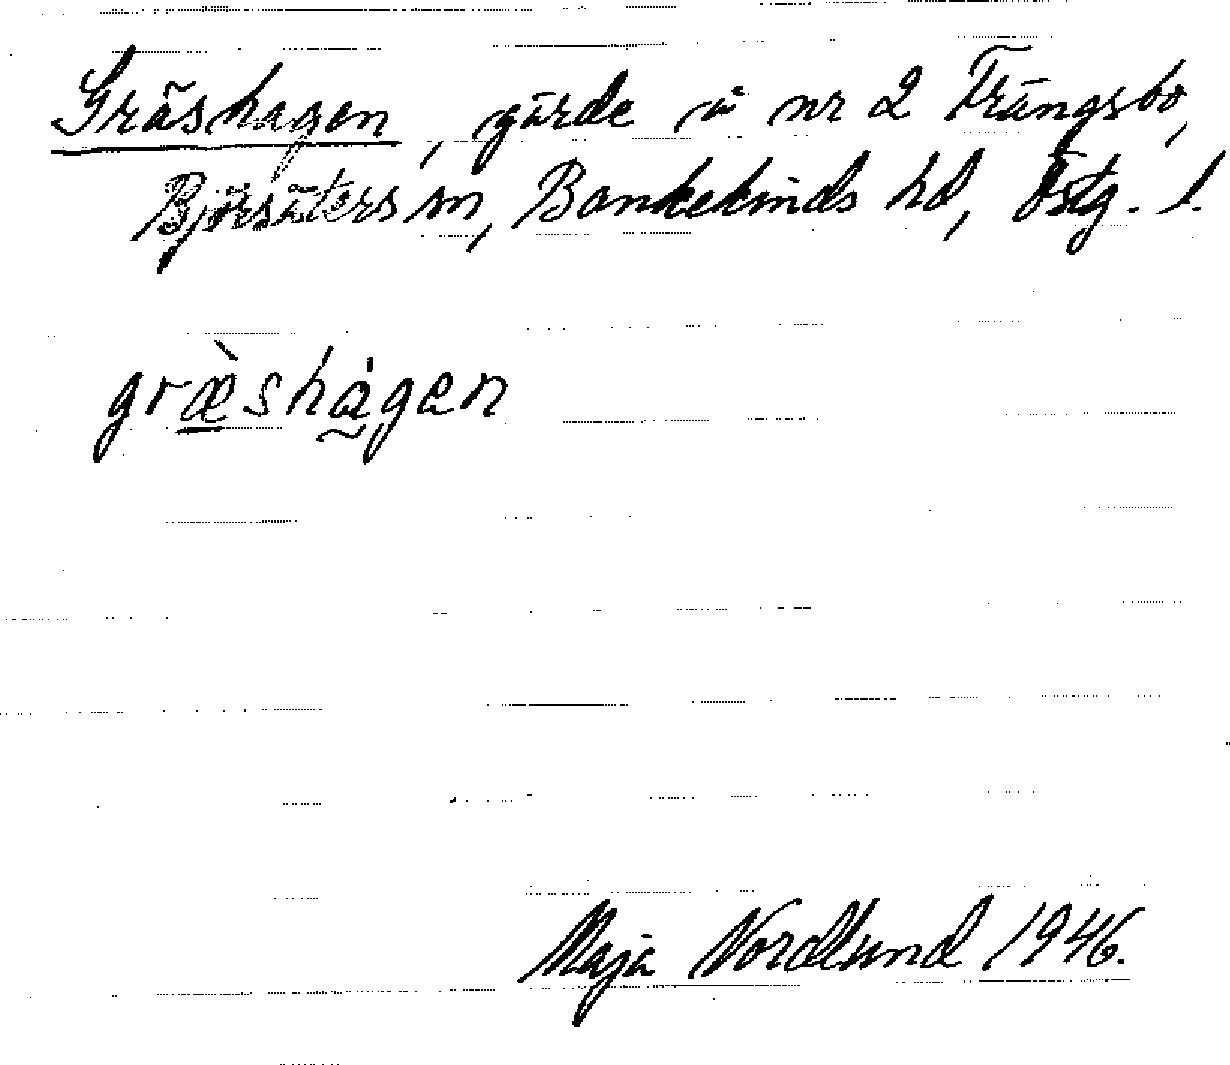 Gräshagen, gärde å nr 2 Trängsbo,
Björsäters sn, Bankekinds hd, Östg. l.
græ̀shågen
Maja Nordlund 1946.